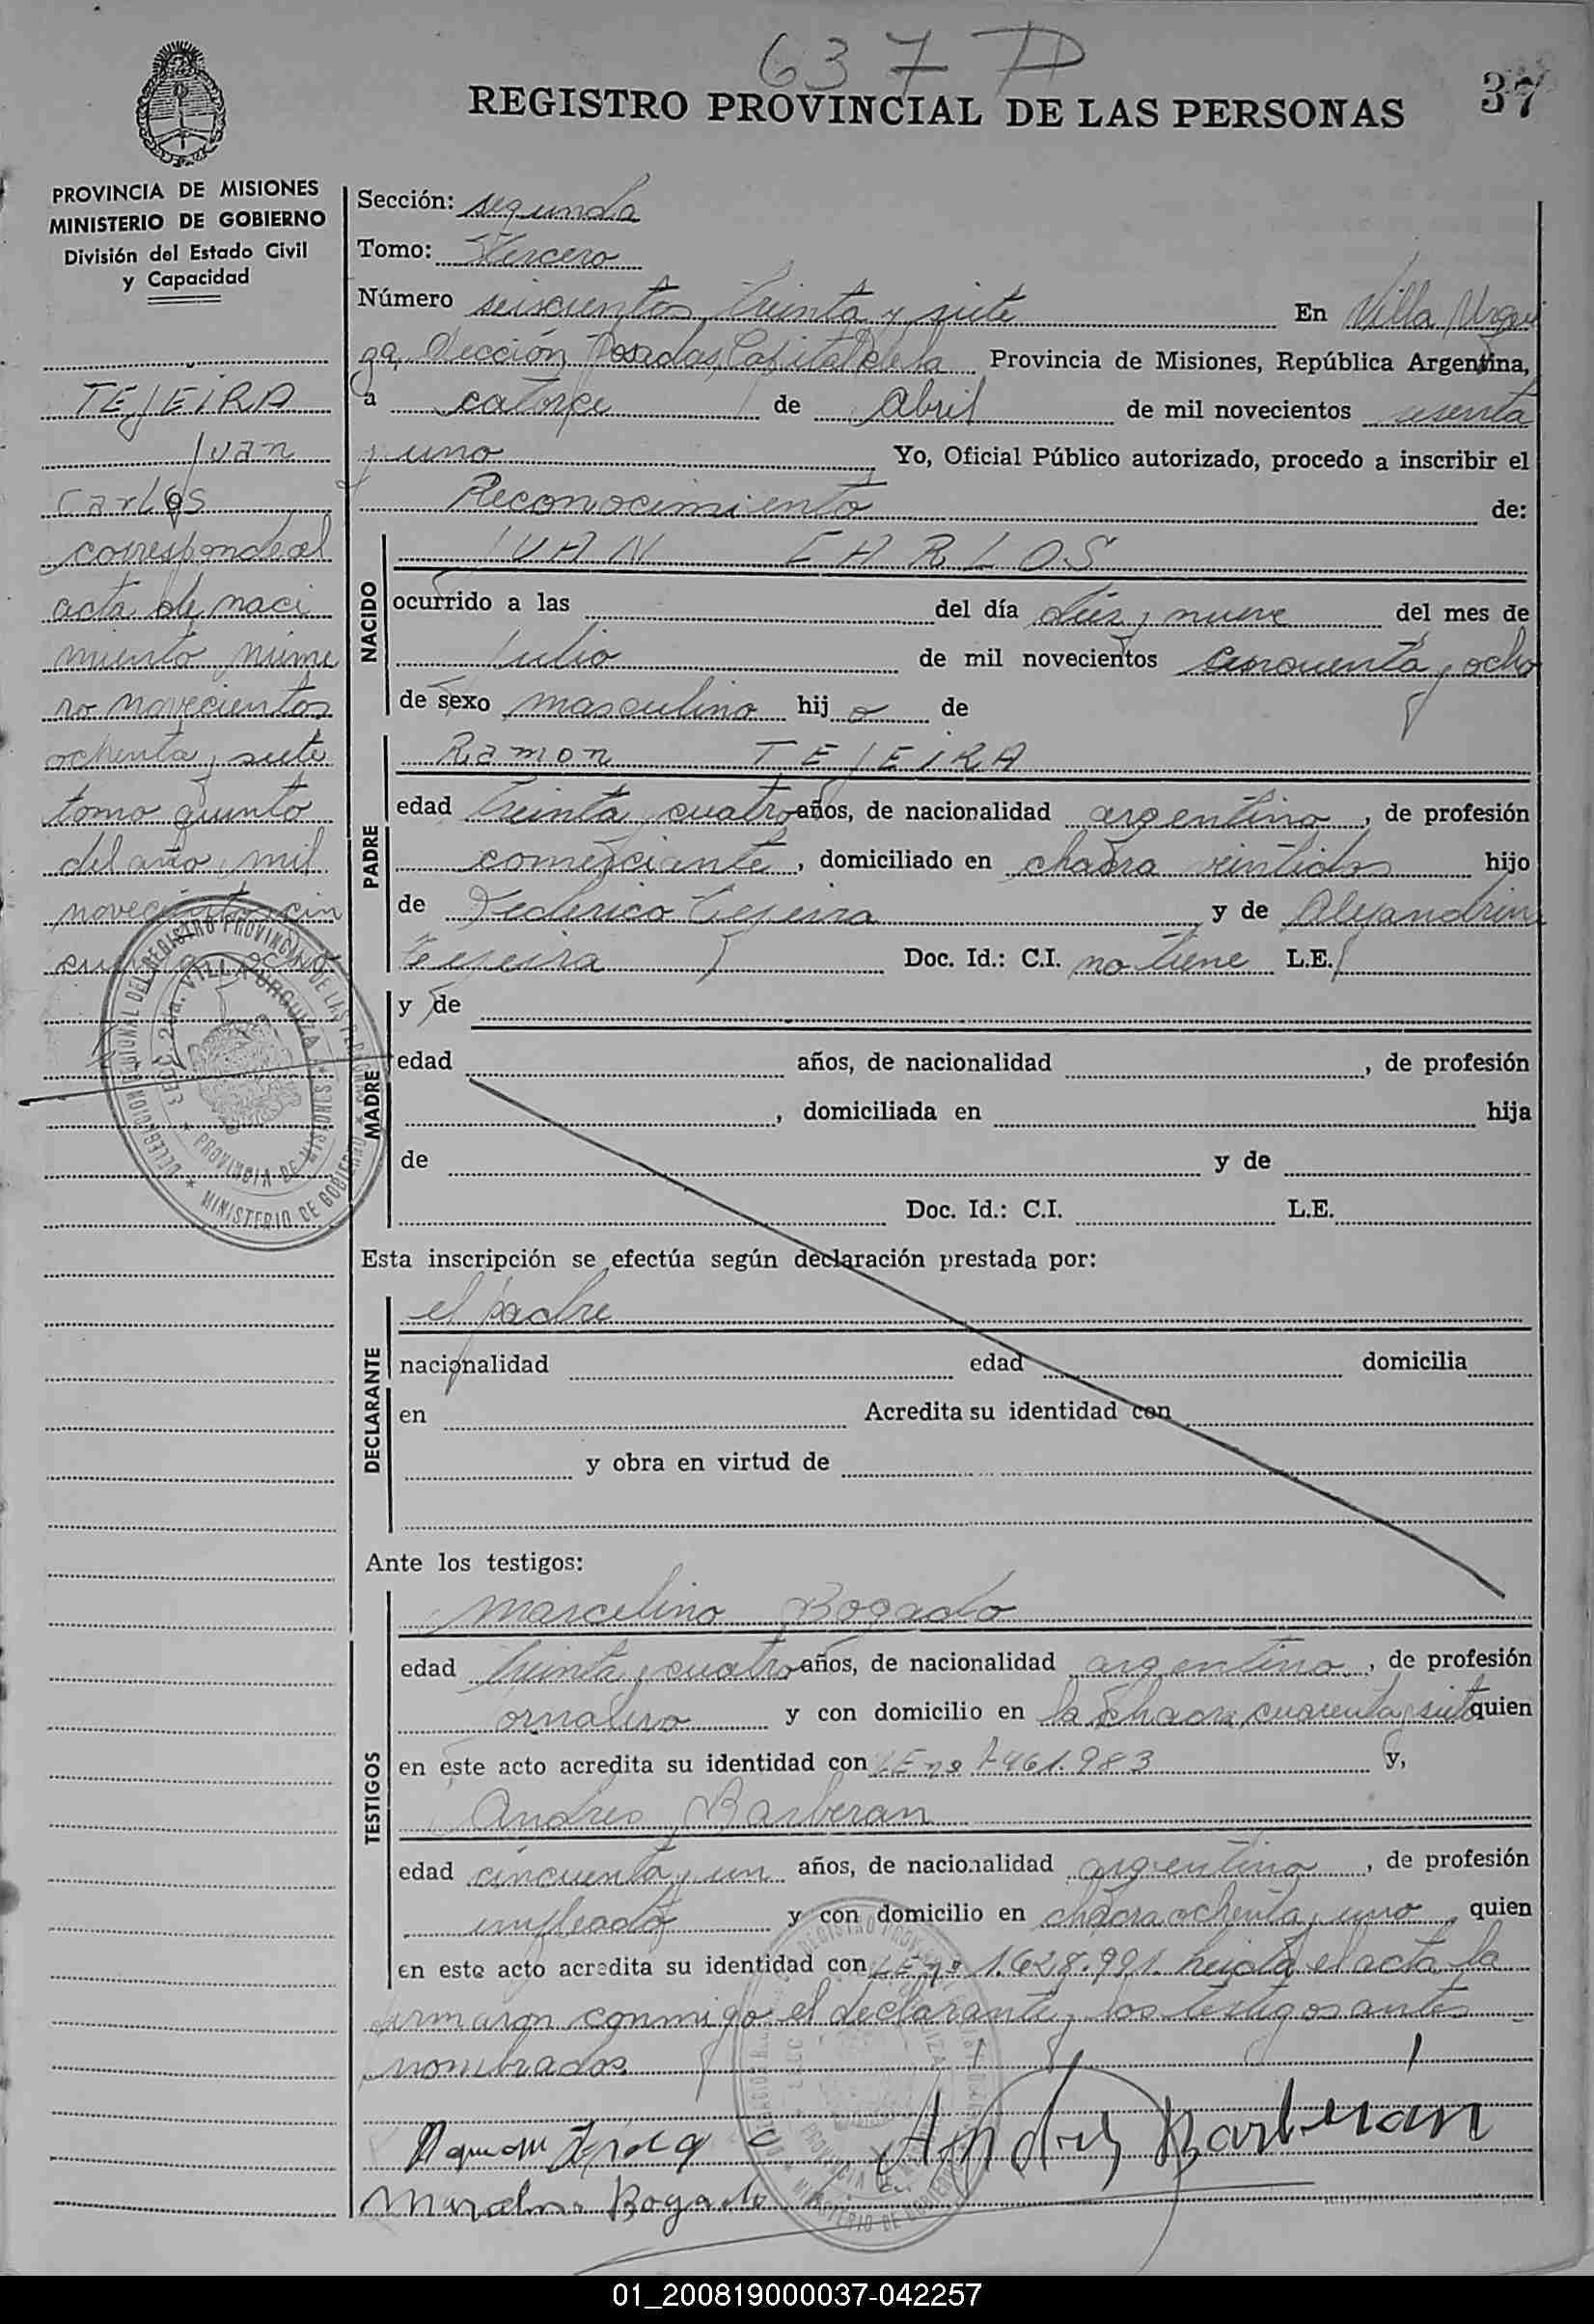 637 D
REGISTRO PROVINCIAL DE LAS PERSONAS
37
PROVINCIA DE MISIONES
MINISTERIO DE GOBIERNO
División del Estado Civil
y Capacidad
TEJEIRA
Juan
Carlos
corresponde al
acta de naci
miento núme
ro novecientos
ochenta y siete
tomo quinto
del año mil
novecientos cin
cuenta y ocho
DELEGACION SECCIONAL DEL REGISTRO PROVINCIAL DE LAS PERSONAS
SECC. 2da. VILLA URQUIZA MISIONES
PROVINCIA DE MISIONES
MINISTERIO DE GOBIERNO
Sección: segunda
Tomo: Tercero
Número seiscientos treinta y siete En Villa Urqui
za, Sección Posadas, Capital de la Provincia de Misiones, República Argentina,
a catorce de Abril de mil novecientos sesenta
y uno Yo, Oficial Público autorizado, procedo a inscribir el
Reconocimiento de:
NACIDO
JUAN CARLOS
ocurrido a las del día diez y nueve del mes de
Julio de mil novecientos cincuenta y ocho
de sexo masculino hijo de
PADRE
Ramon TEJEIRA
edad treinta y cuatro años, de nacionalidad argentino, de profesión
comerciante, domiciliado en chacra veintidos hijo
de Federico Tejeira y de Alejandrina
Tejeira Doc. Id.: C.I. no tiene L.E.
MADRE
y de
edad años, de nacionalidad , de profesión
, domiciliada en hija
de y de
Doc. Id.: C.I. L.E.
Esta inscripción se efectúa según declaración prestada por:
DECLARANTE
el padre
nacionalidad edad domicilia
en Acredita su identidad con
y obra en virtud de
Ante los testigos:
TESTIGOS
Marcelino Bogado
edad treinta y cuatro años, de nacionalidad argentino, de profesión
jornalero y con domicilio en la chacra cuarenta y siete quien
en este acto acredita su identidad con LE nº 7461.983 y,
Andres Barberan
edad cincuenta y un años, de nacionalidad argentino, de profesión
empleado y con domicilio en chacra ochenta y uno quien
en este acto acredita su identidad con LE nº 1.628.991. leída el acta la
firmaron conmigo el declarante y los testigos antes
nombrados
Andrés Barberán
Marcelino Bogado
01_200819000037-042257